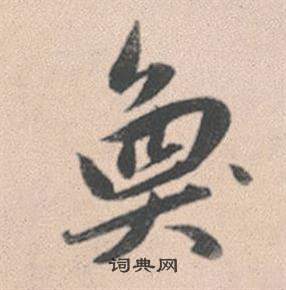 奐
词典网